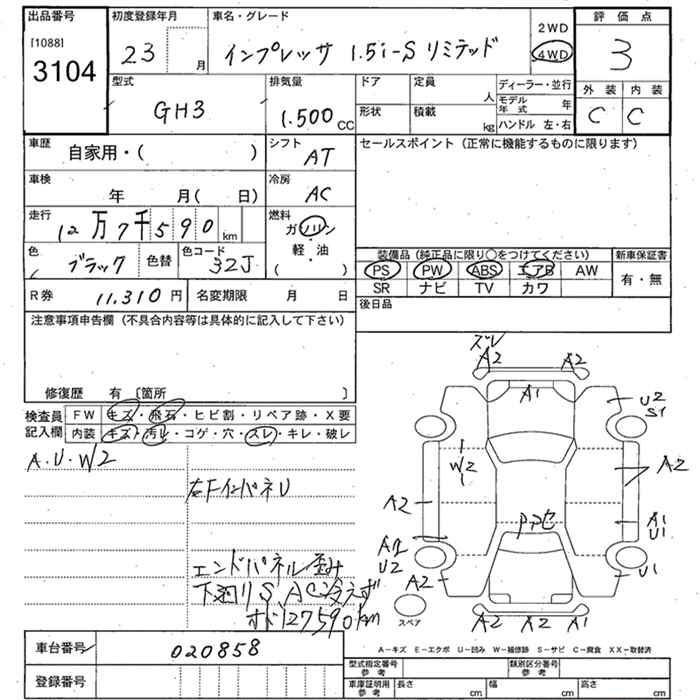 出品番号 初度登録年月 車名・グレード 評価点
[1088]
3104
23 月 インプレッサ 1.5i-S リミテッド 2WD 4WD 3
型式 排気量 ドア 定員 人 ディーラー・並行 外装 内装
GH3 1.500 CC 形状 積載 kg モデル年式 年 C C
ハンドル 左・右
車歴 自家用・( ) シフト AT セールスポイント (正常に機能するものに限ります)
車検 年 月( 日) 冷房 AC
走行 12万7千590 km 燃料 ガソリン・軽油 ( )
色 ブラック 色替 色コード 32J
装備品 (純正品に限り○をつけてください) 新車保証書
PS PW ABS エアB AW 有・無
SR ナビ TV カワ
R券 11.310 円 名変期限 月 日 後日品
注意事項申告欄 (不具合内容等は具体的に記入して下さい)
修復歴 有 [箇所 ]
検査員記入欄 FW キズ・飛石・ヒビ割・リペア跡・X要
内装 キズ・汚レ・コゲ・穴・スレ・キレ・破レ
A.U.W2
左FインパネU
エンドパネル歪み
下廻りS、AC冷えず
オド127590km
ズレ
A2 A2
A1
U2
S1
W2
A2
A2
A1
U1
Pアセ
A2
U2
A2
U1
スペア
A2 A2 A1
A-キズ E-エクボ U-凹み W-補修跡 S-サビ C-腐食 XX-取替済
車台番号 020858
登録番号
型式指定番号 参考 類別区分番号 参考
車庫証明用 参考 長さ cm 幅 cm 高さ cm